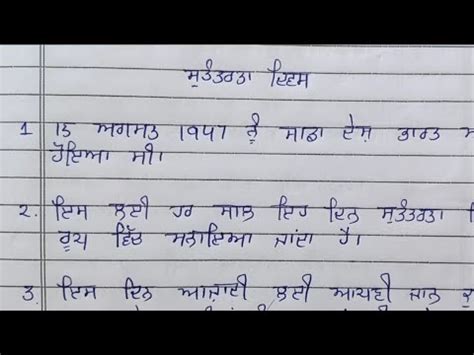 ਸੁਤੰਤਰਤਾ ਦਿਵਸ
1 15 ਅਗਸਤ 1947 ਨੂੰ ਸਾਡਾ ਦੇਸ਼ ਭਾਰਤ
ਹੋਇਆ ਸੀ।
2. ਇਸ ਲਈ ਹਰ ਸਾਲ ਇਹ ਦਿਨ ਸੁਤੰਤਰਤਾ
ਰੂਪ ਵਿੱਚ ਮਨਾਇਆ ਜਾਂਦਾ ਹੈ।
3. ਇਸ ਦਿਨ ਆਜ਼ਾਦੀ ਲਈ ਆਪਣੀ ਜਾਨ